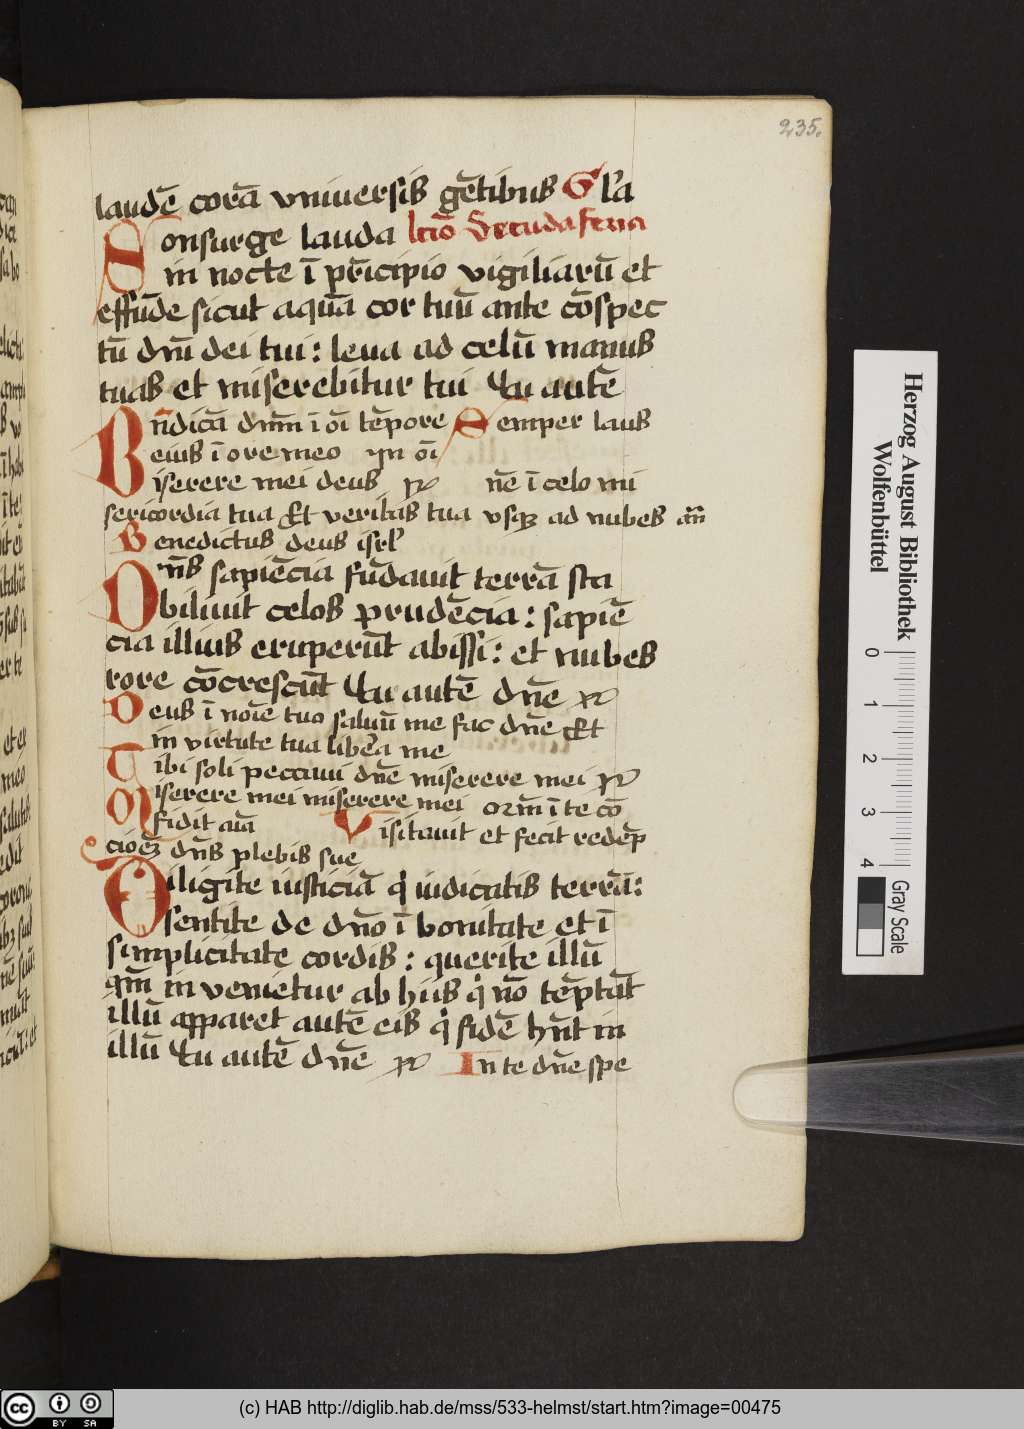 235.
laudē corā vniuersis gētibus Gl'a
Consurge lauda lcīo Secūda feria
in nocte ī prīcipio vigiliarū et
effūde sicut aquā cor tuū ante cōspec
tū dnī dei tui: leua ad celū manus
tuas et miserebitur tui Tu autē
Bn̄dicā dnm̄ ī oī tēpore Semper laus
eius ī ore meo yn oī
iserere mei deus nē ī celo mi
sericordia tua Et veritas tua vsqꝫ ad nubes an̄
Benedictus deus isrl'
Dn̄s sapiēcia fūdauit terrā sta
biliuit celos prudēcia: sapiē
cia illius eruperūt abissi: et nubes
rore cōcrescūt Tu autē dnē
Deus ī noīe tuo saluū me fac dnē Et
in virtute tua libera me
Tibi soli peccaui dnē miserere mei
Miserere mei miserere mei qm̄ ī te cō
fidit aīa Visitauit et fecit redēp
cioēꝫ dn̄s plebis sue
Diligite iusticiā q' iudicatis terrā:
sentite de dnō ī bonitate et ī
simplicitate cordis: querite illū
qm̄ in venietur ab hiis q' nō tēptāt
illū apparet autē eis q' fidē hn̄t in
illū Tu autē dnē In te dnē spe
Herzog August Bibliothek
Wolfenbüttel
0 1 2 3 4
Gray Scale
cc BY SA
(c) HAB http://diglib.hab.de/mss/533-helmst/start.htm?image=00475